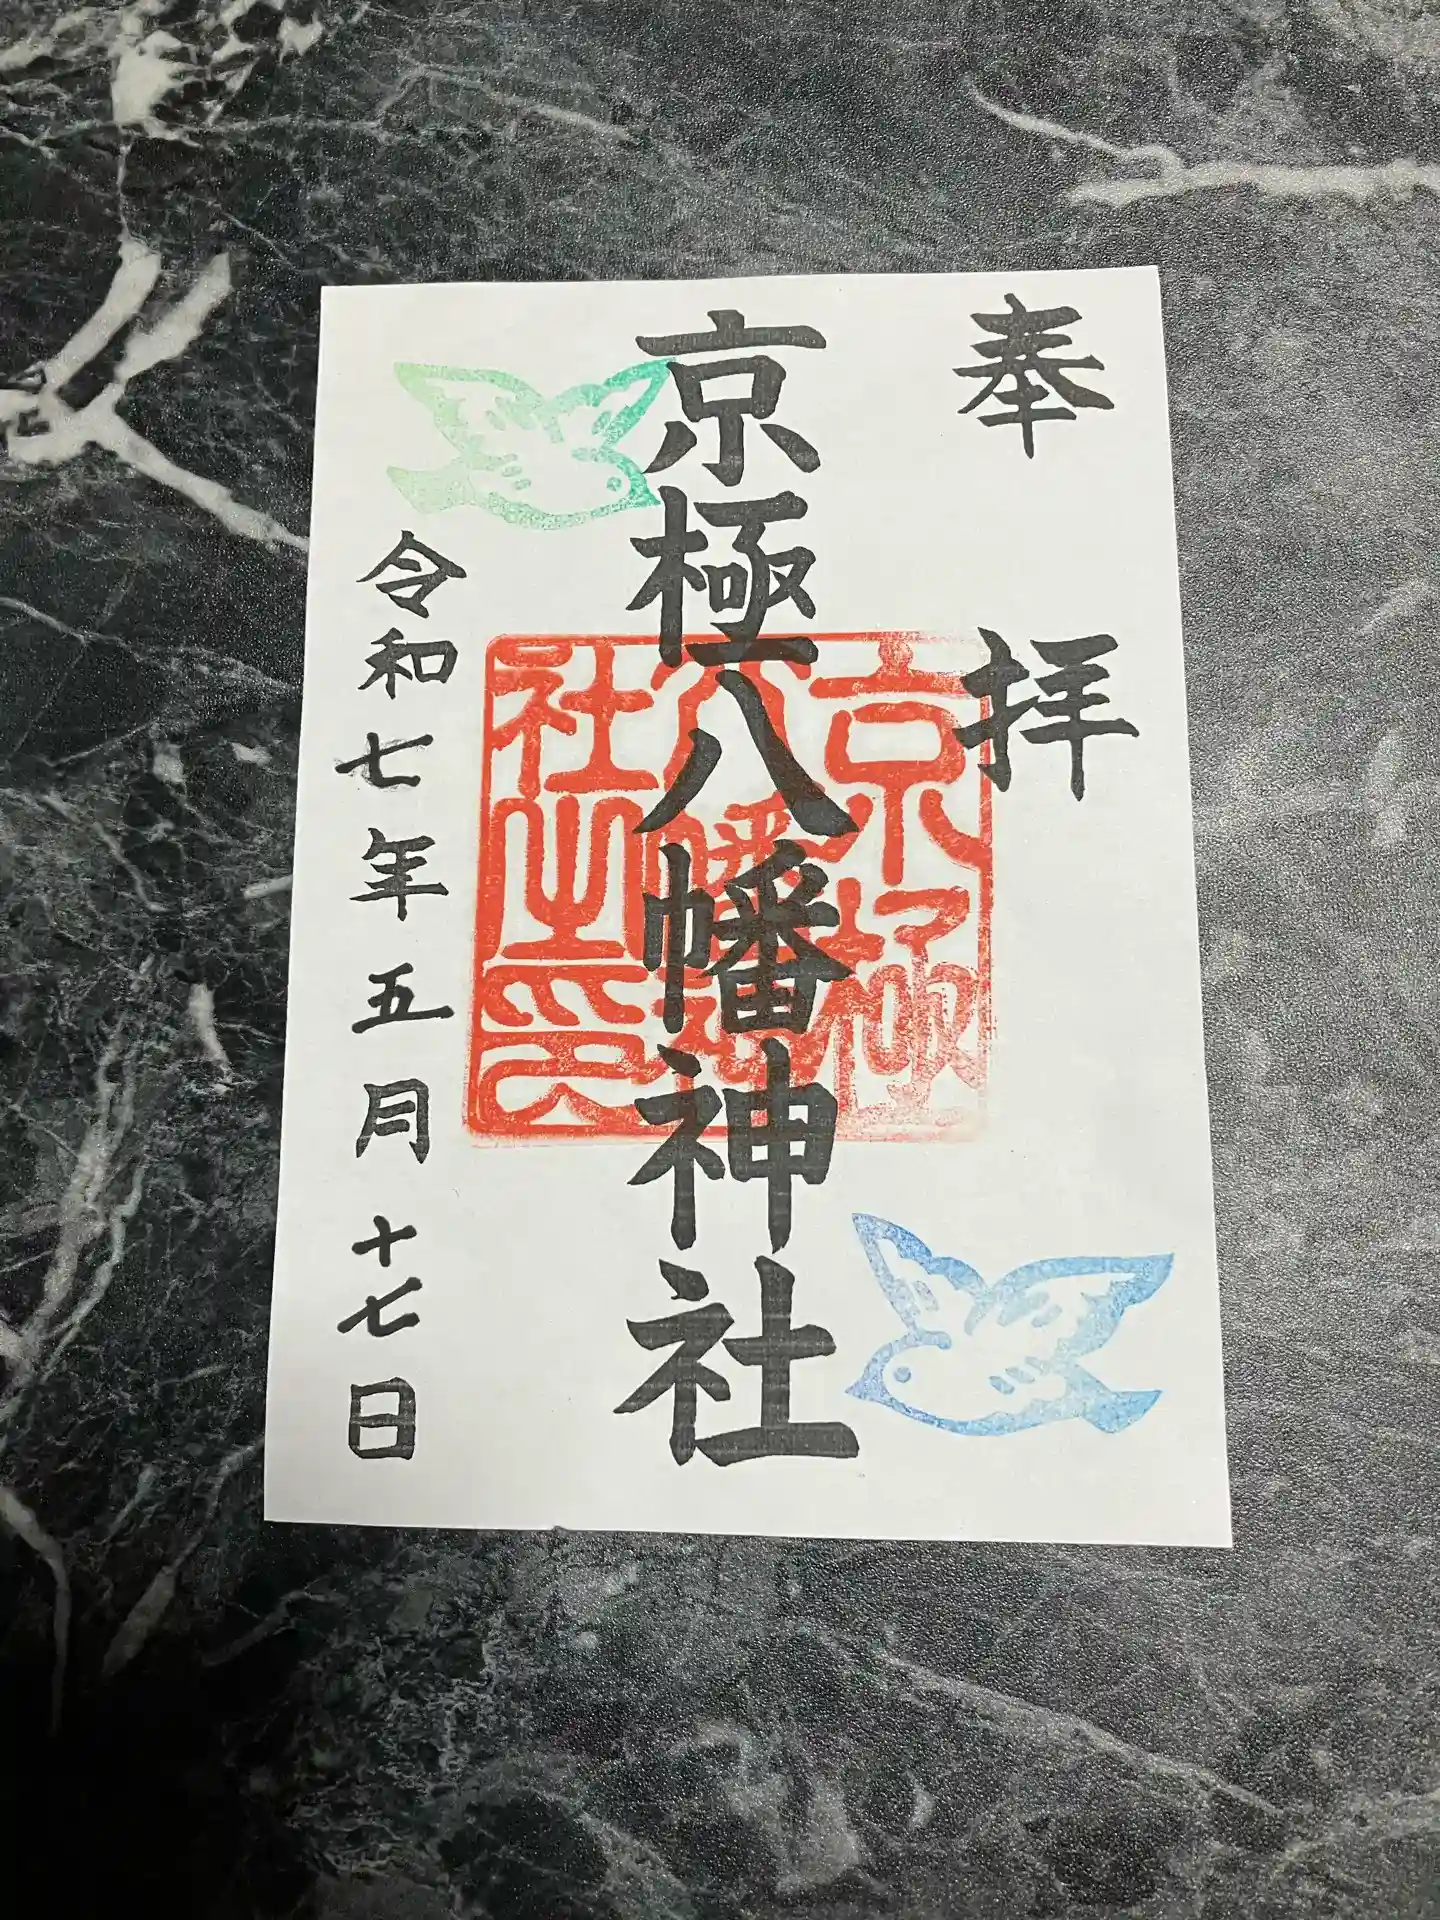 奉拝
京極八幡神社
京極
八幡神
社之印
令和七年五月十七日